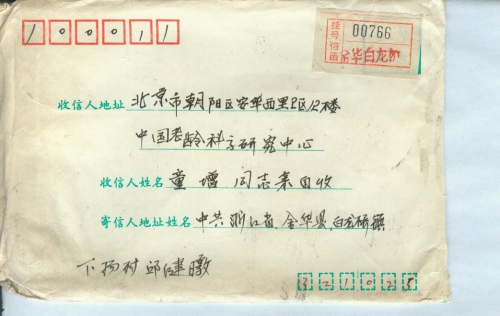 100011
挂号信函
00766
金华白龙桥
收信人地址 北京市朝阳区安华西里2区12楼
中国老龄科学研究中心
收信人姓名 童增 同志亲自收
寄信人地址姓名 中共浙江省、金华县、白龙桥镇
下杨村 邱健
321025